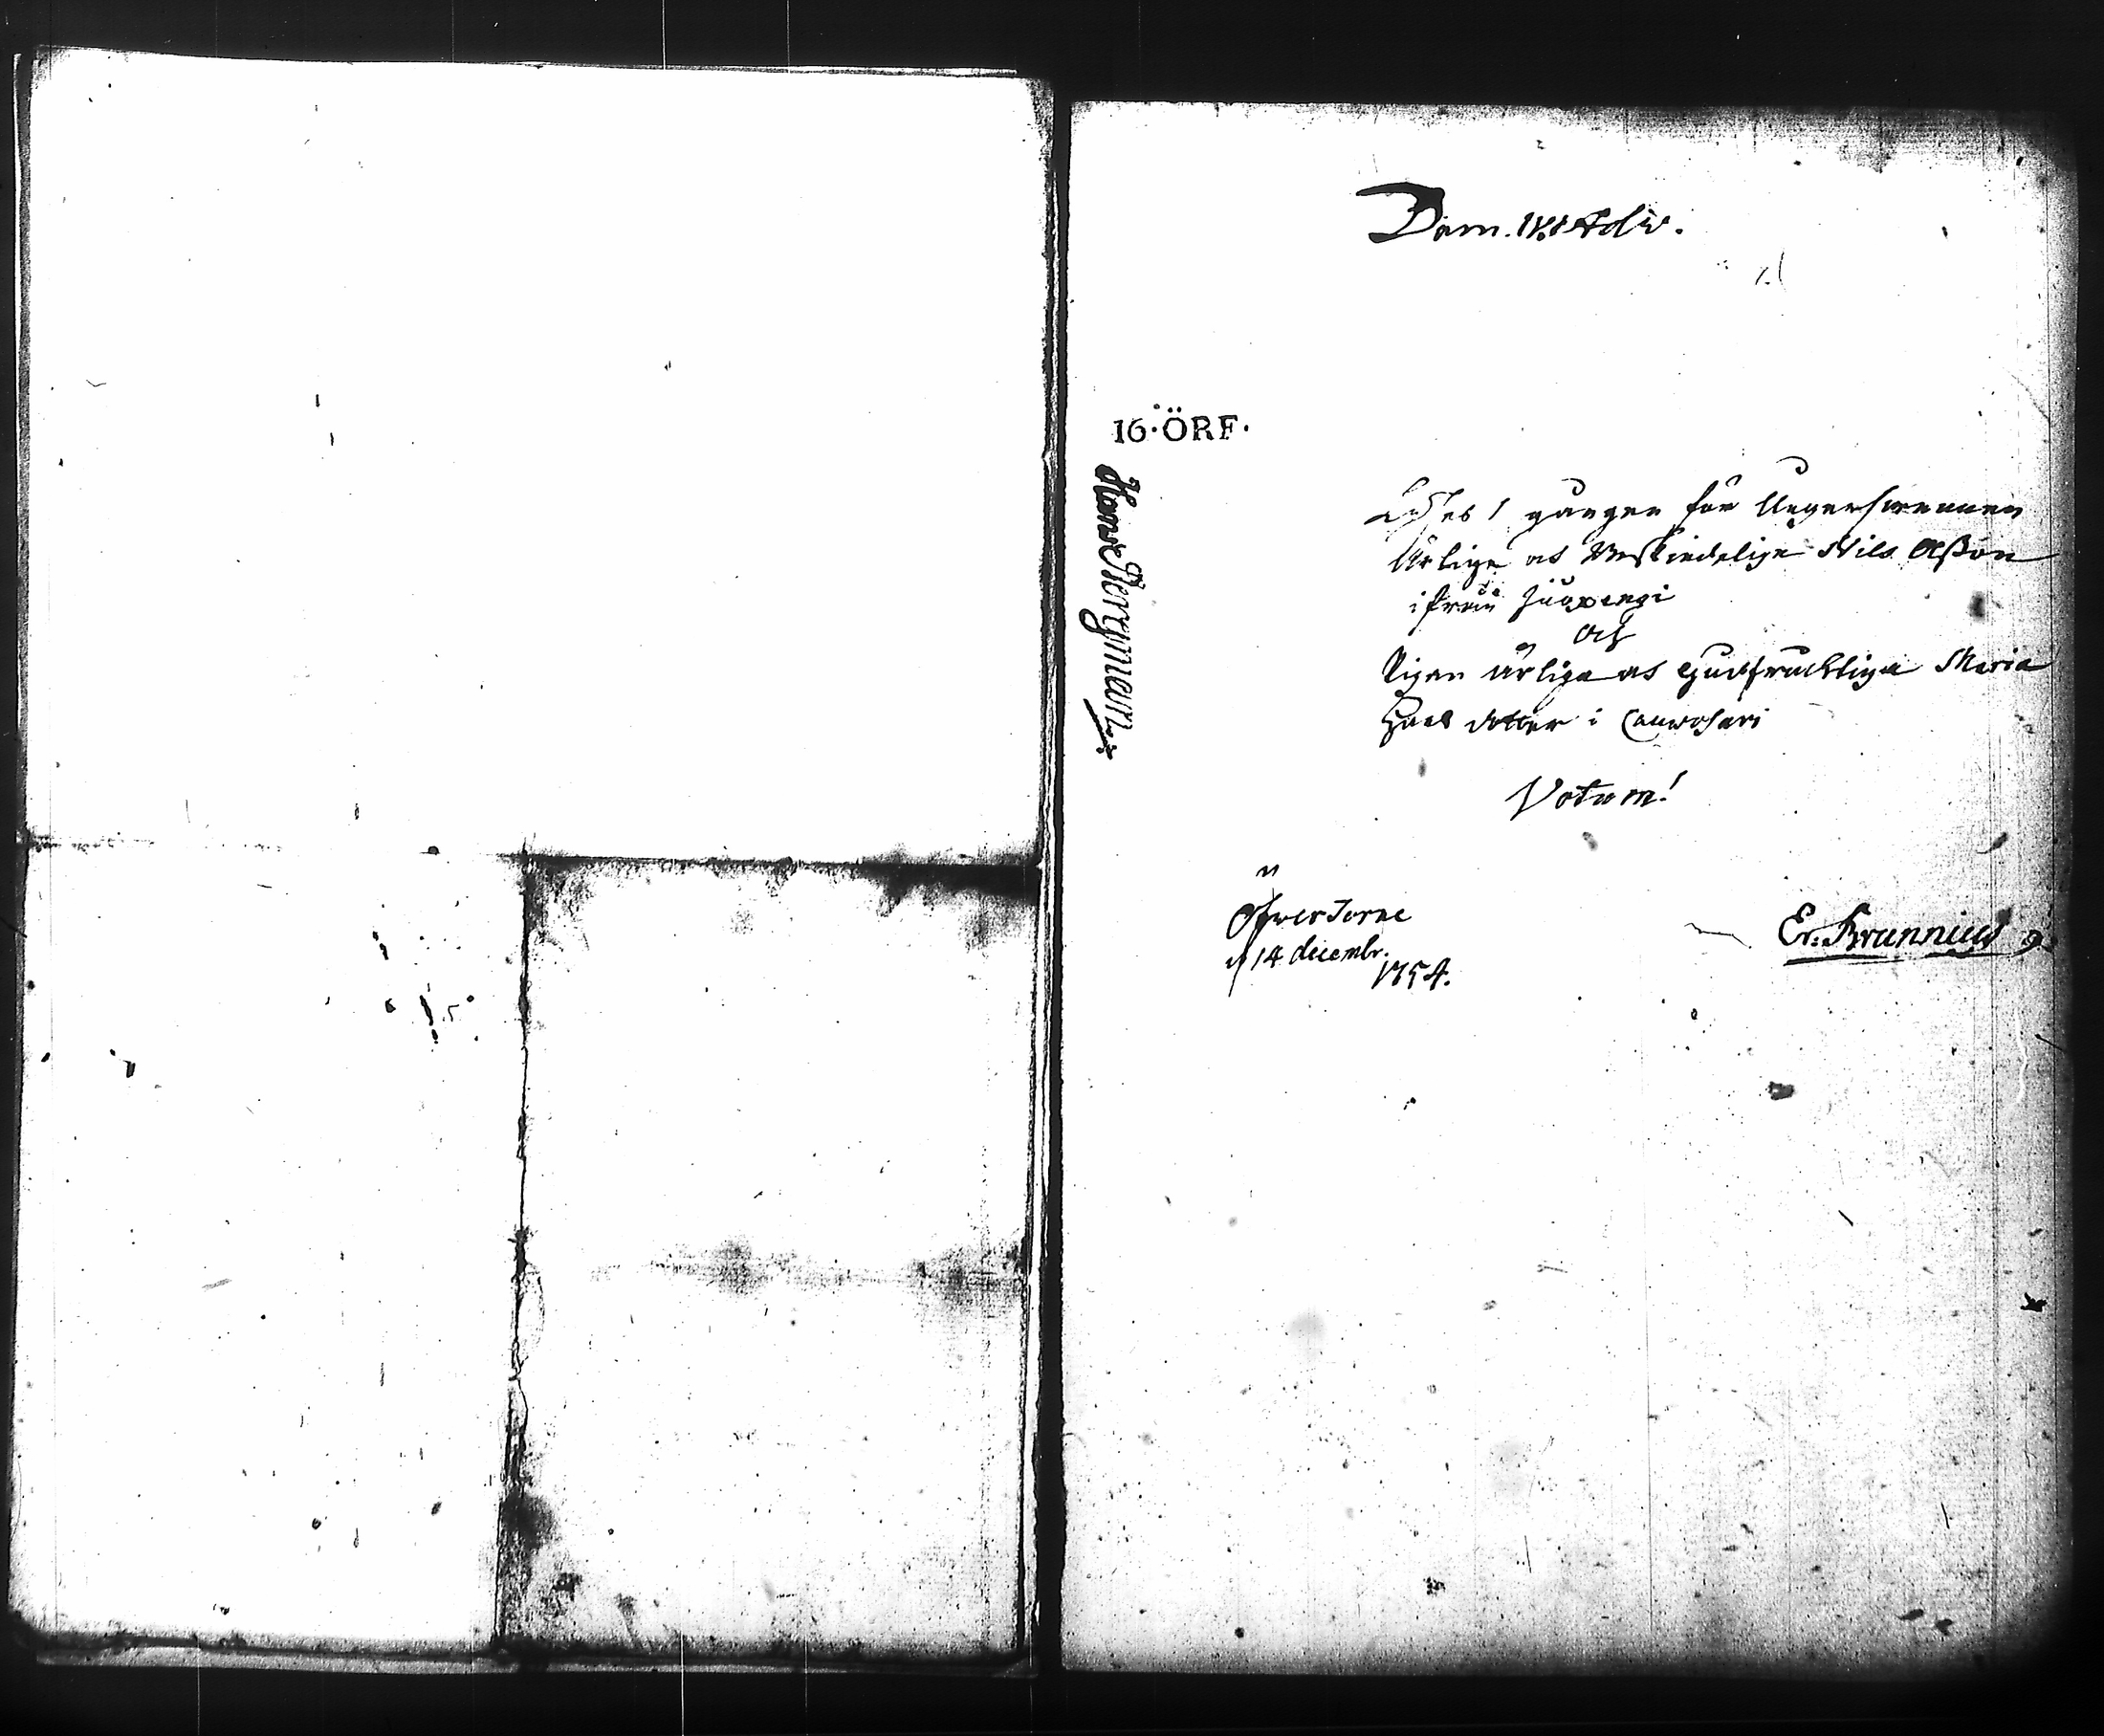 Dom. IV. Adv.
16·ÖRF·
Hans Bergman
Lyses 1 gången för Ungersvennen
Ärlige och Beskiedelige Nils Olßon
ifrån Juoxengi
och
Pigan ärliga och Gudfruchtiga Maria
dotter i
Votum!
Öfwer Torne
d 14 decembr.
1754.
Er: Brunnius